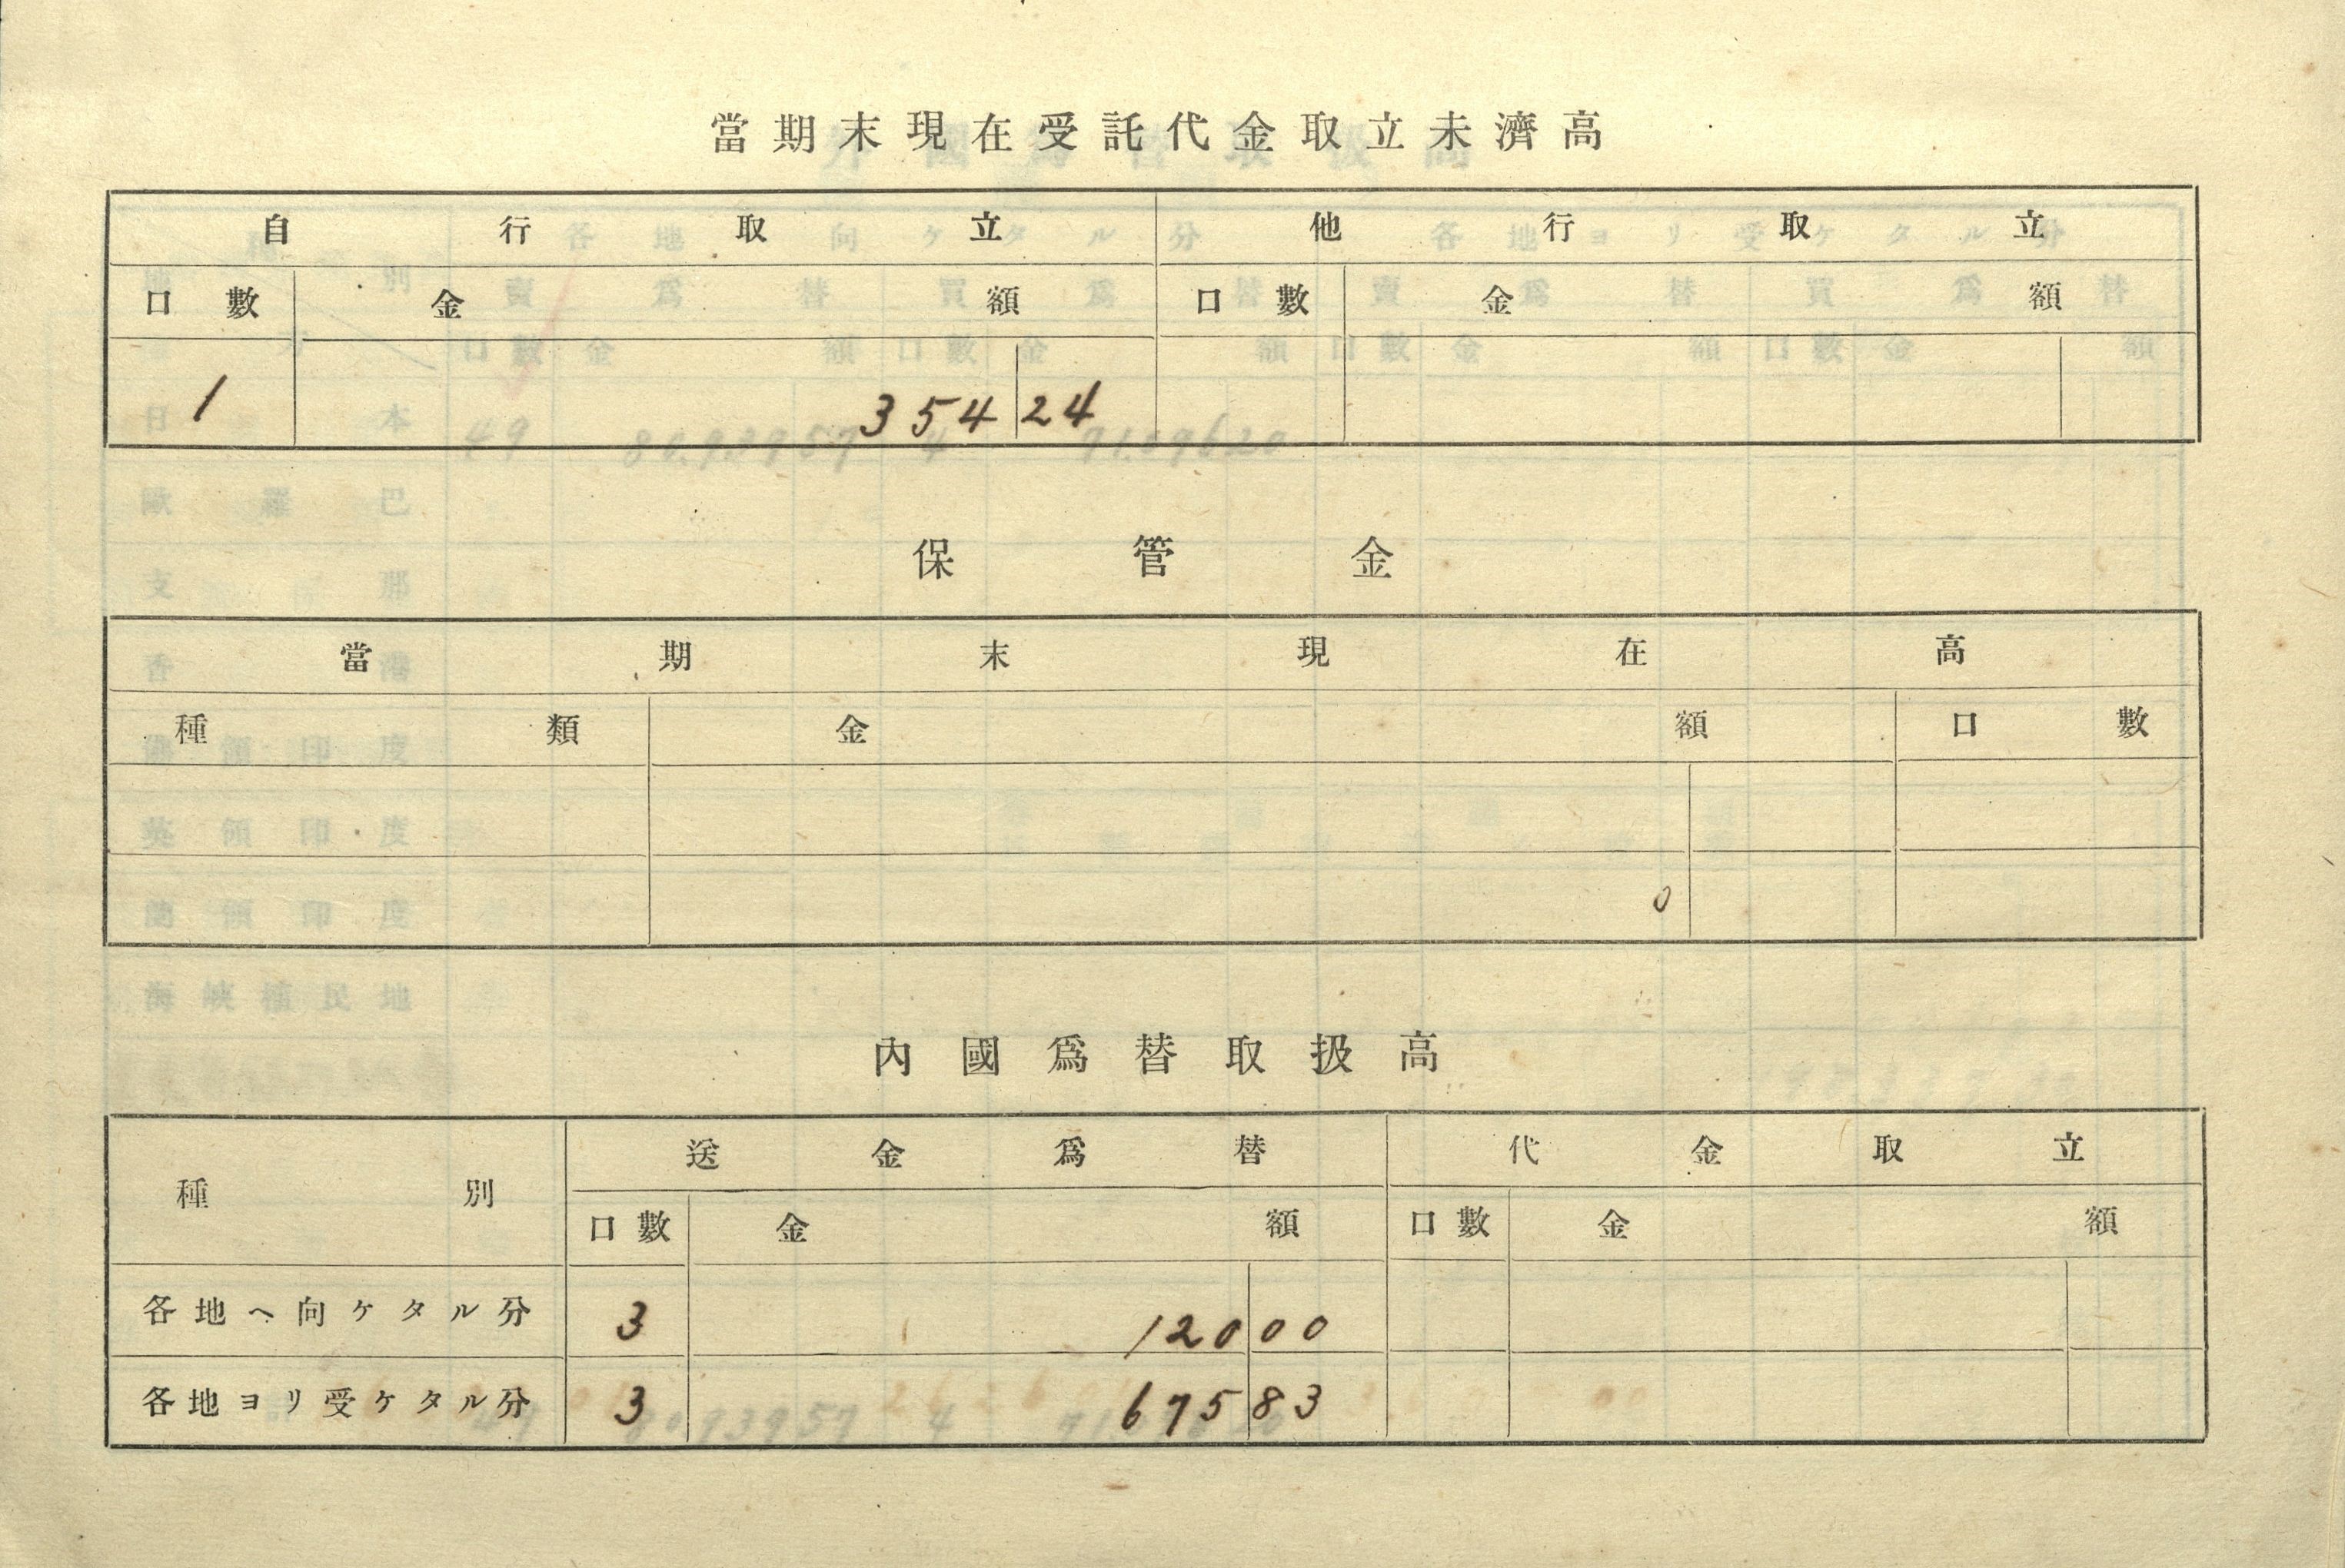 當期末現在受託代金取立未濟高
自行取立 他行取立
口數 金額 口數 金額
1 354 24
保管金
當期末現在高
種類 金額 口數
0
內國爲替取扱高
種別 送金爲替 代金取立
口數 金額 口數 金額
各地ヘ向ケタル分 3 120 00
各地ヨリ受ケタル分 3 675 83